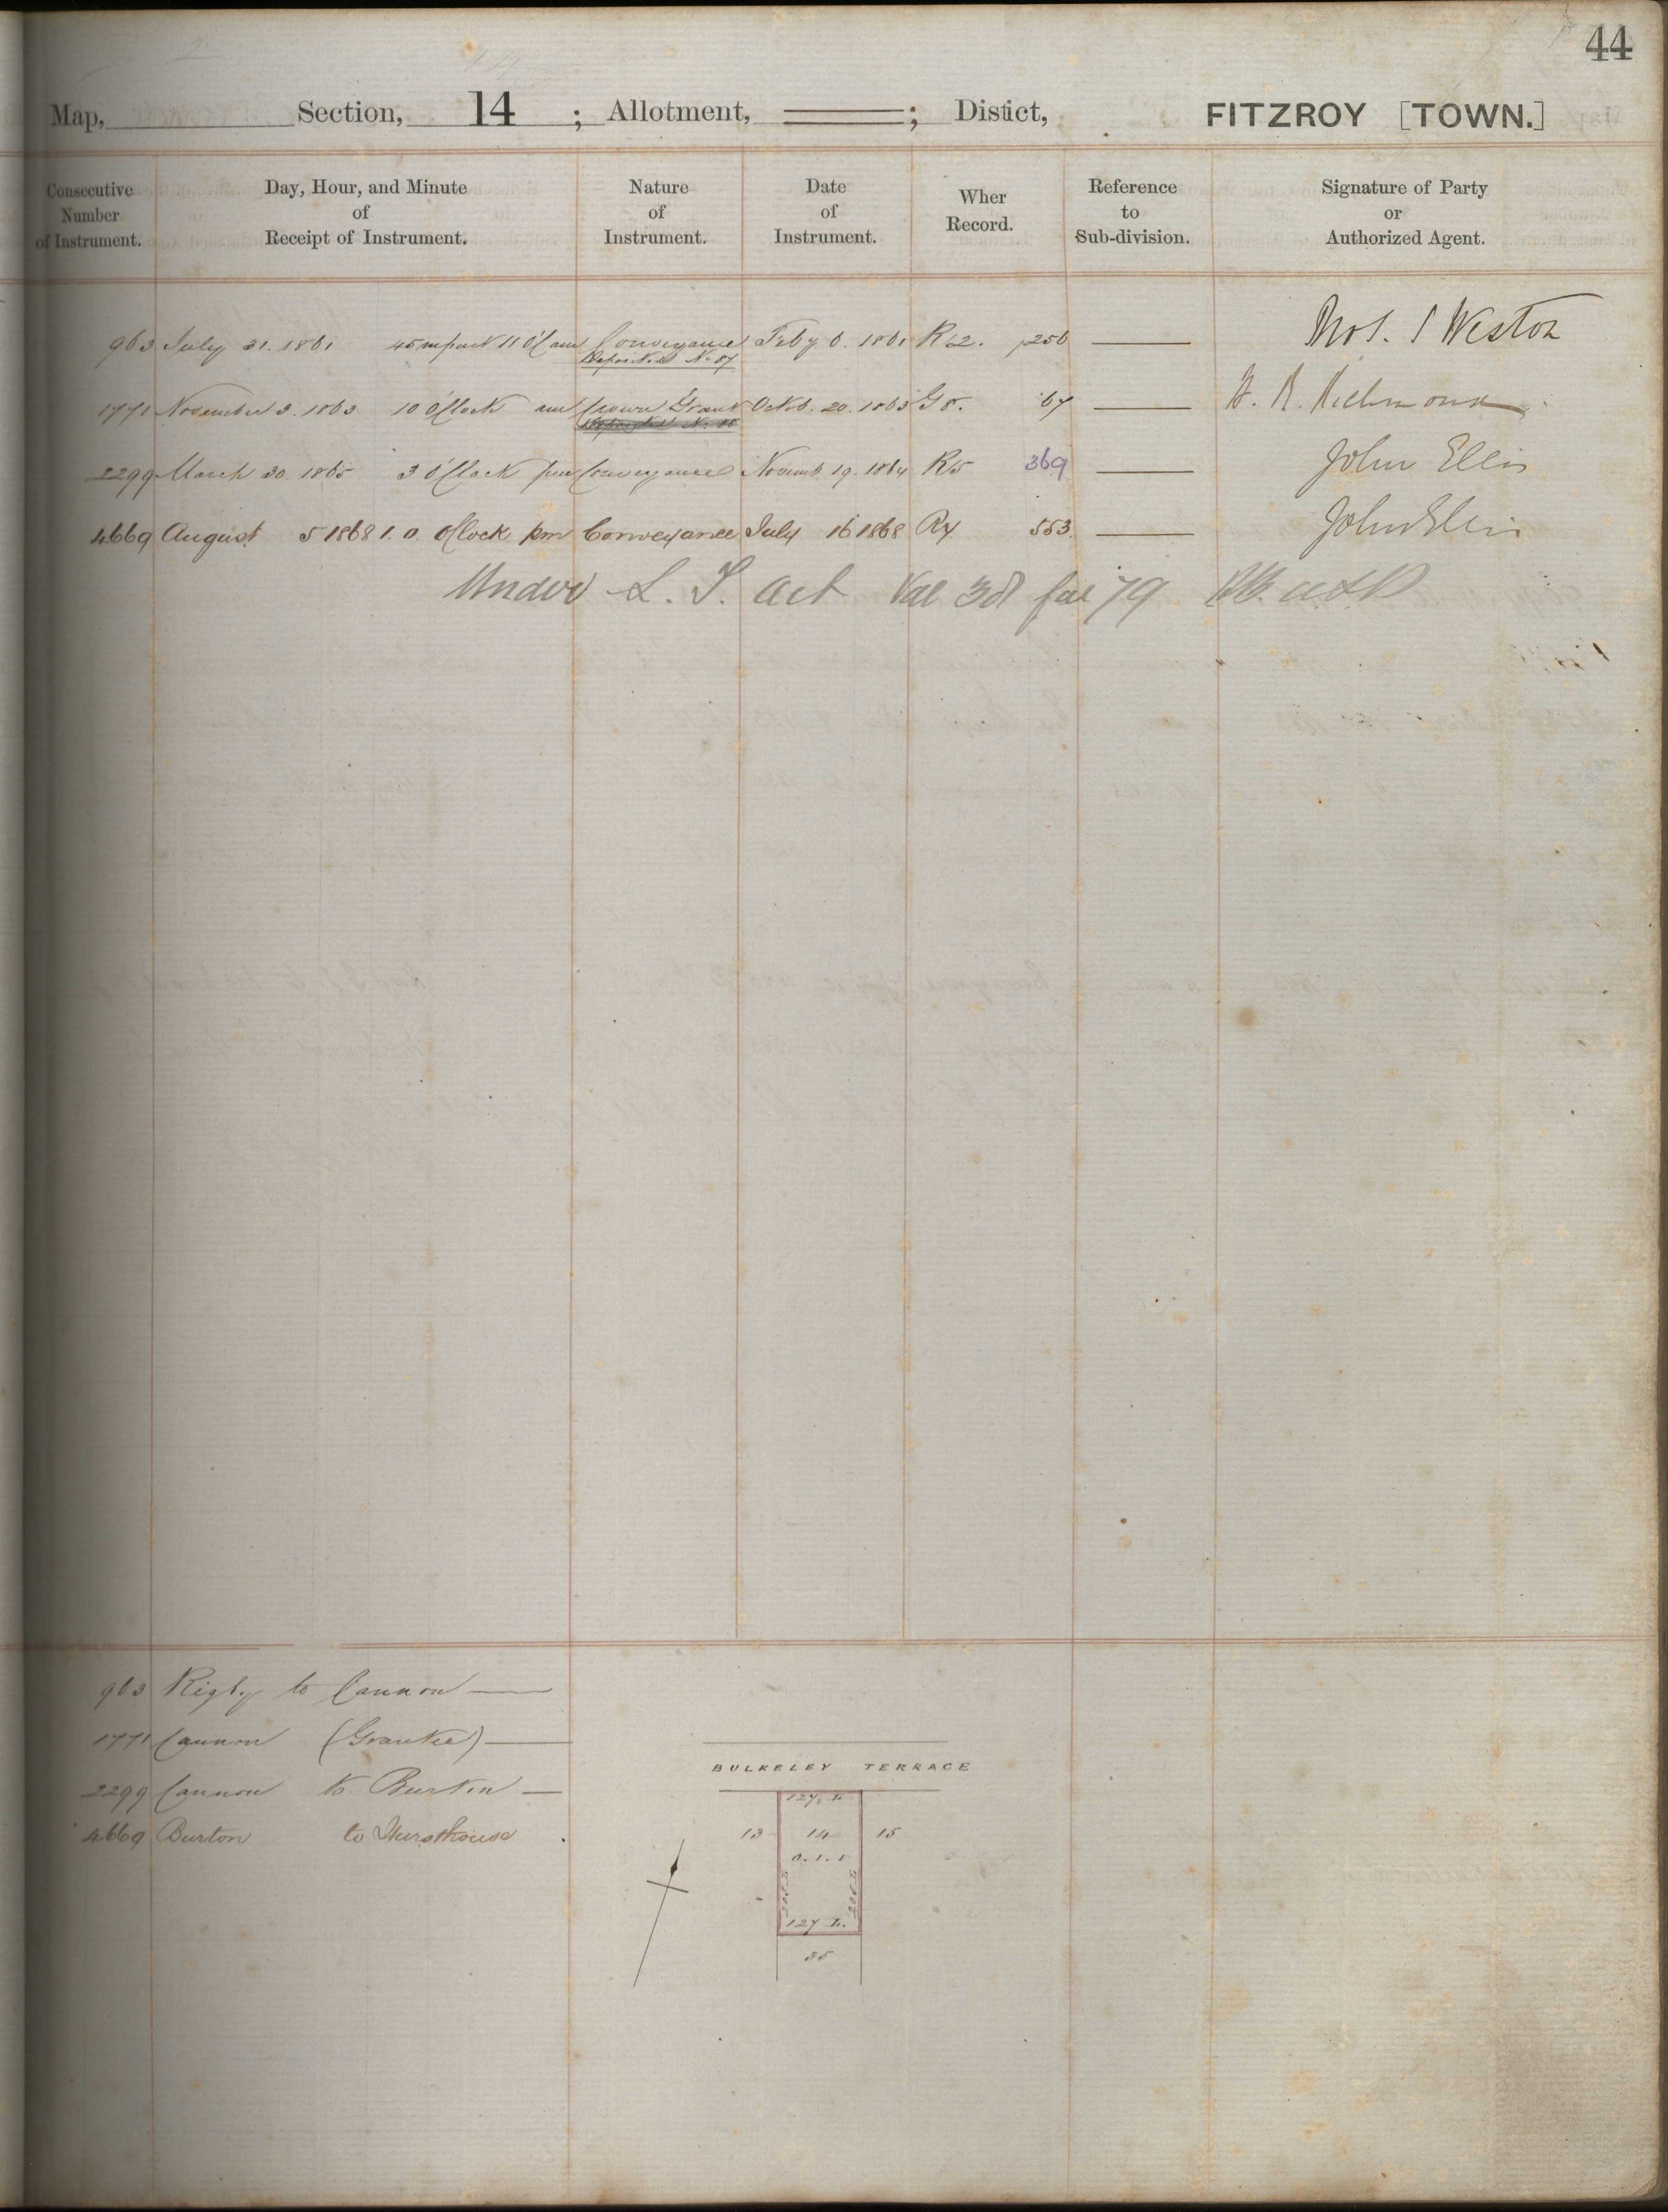 44
Map, Section, 14 ; Allotment, ; Distict, FITZROY [TOWN.]
Consecutive Number of Instrument. Day, Hour, and Minute of Receipt of Instrument. Nature of Instrument. Date of Instrument. Wher Record. Reference to Sub-division. Signature of Party or Authorized Agent.
963 July 31. 1861 45 m past 11 O'C am Conveyance Feby 6. 1861 R2. 256 Weston
Deposited No 87
1771 November 3. 1863 10 O'Clock am Crown Grant Octob. 20. 1863 G 8. 67 Richmond
2299 March 30 1865 3 O'Clock pm Conveyance Novemb 19. 1864 R5 369 John Ellis
4669 August 5 1868 1. 0 O'Clock pm Conveyance July 16 1868 R7 553. John Ellis
Under L. T. Act Vol 3 fol 79
963 Rigby to Cannon
1771 Cannon (Grantee)
2299 Cannon to Burton
4669 Burton to Hursthouse
BULKELEY TERRACE
127 L.
13 14 15
0. 1. 1
127 L.